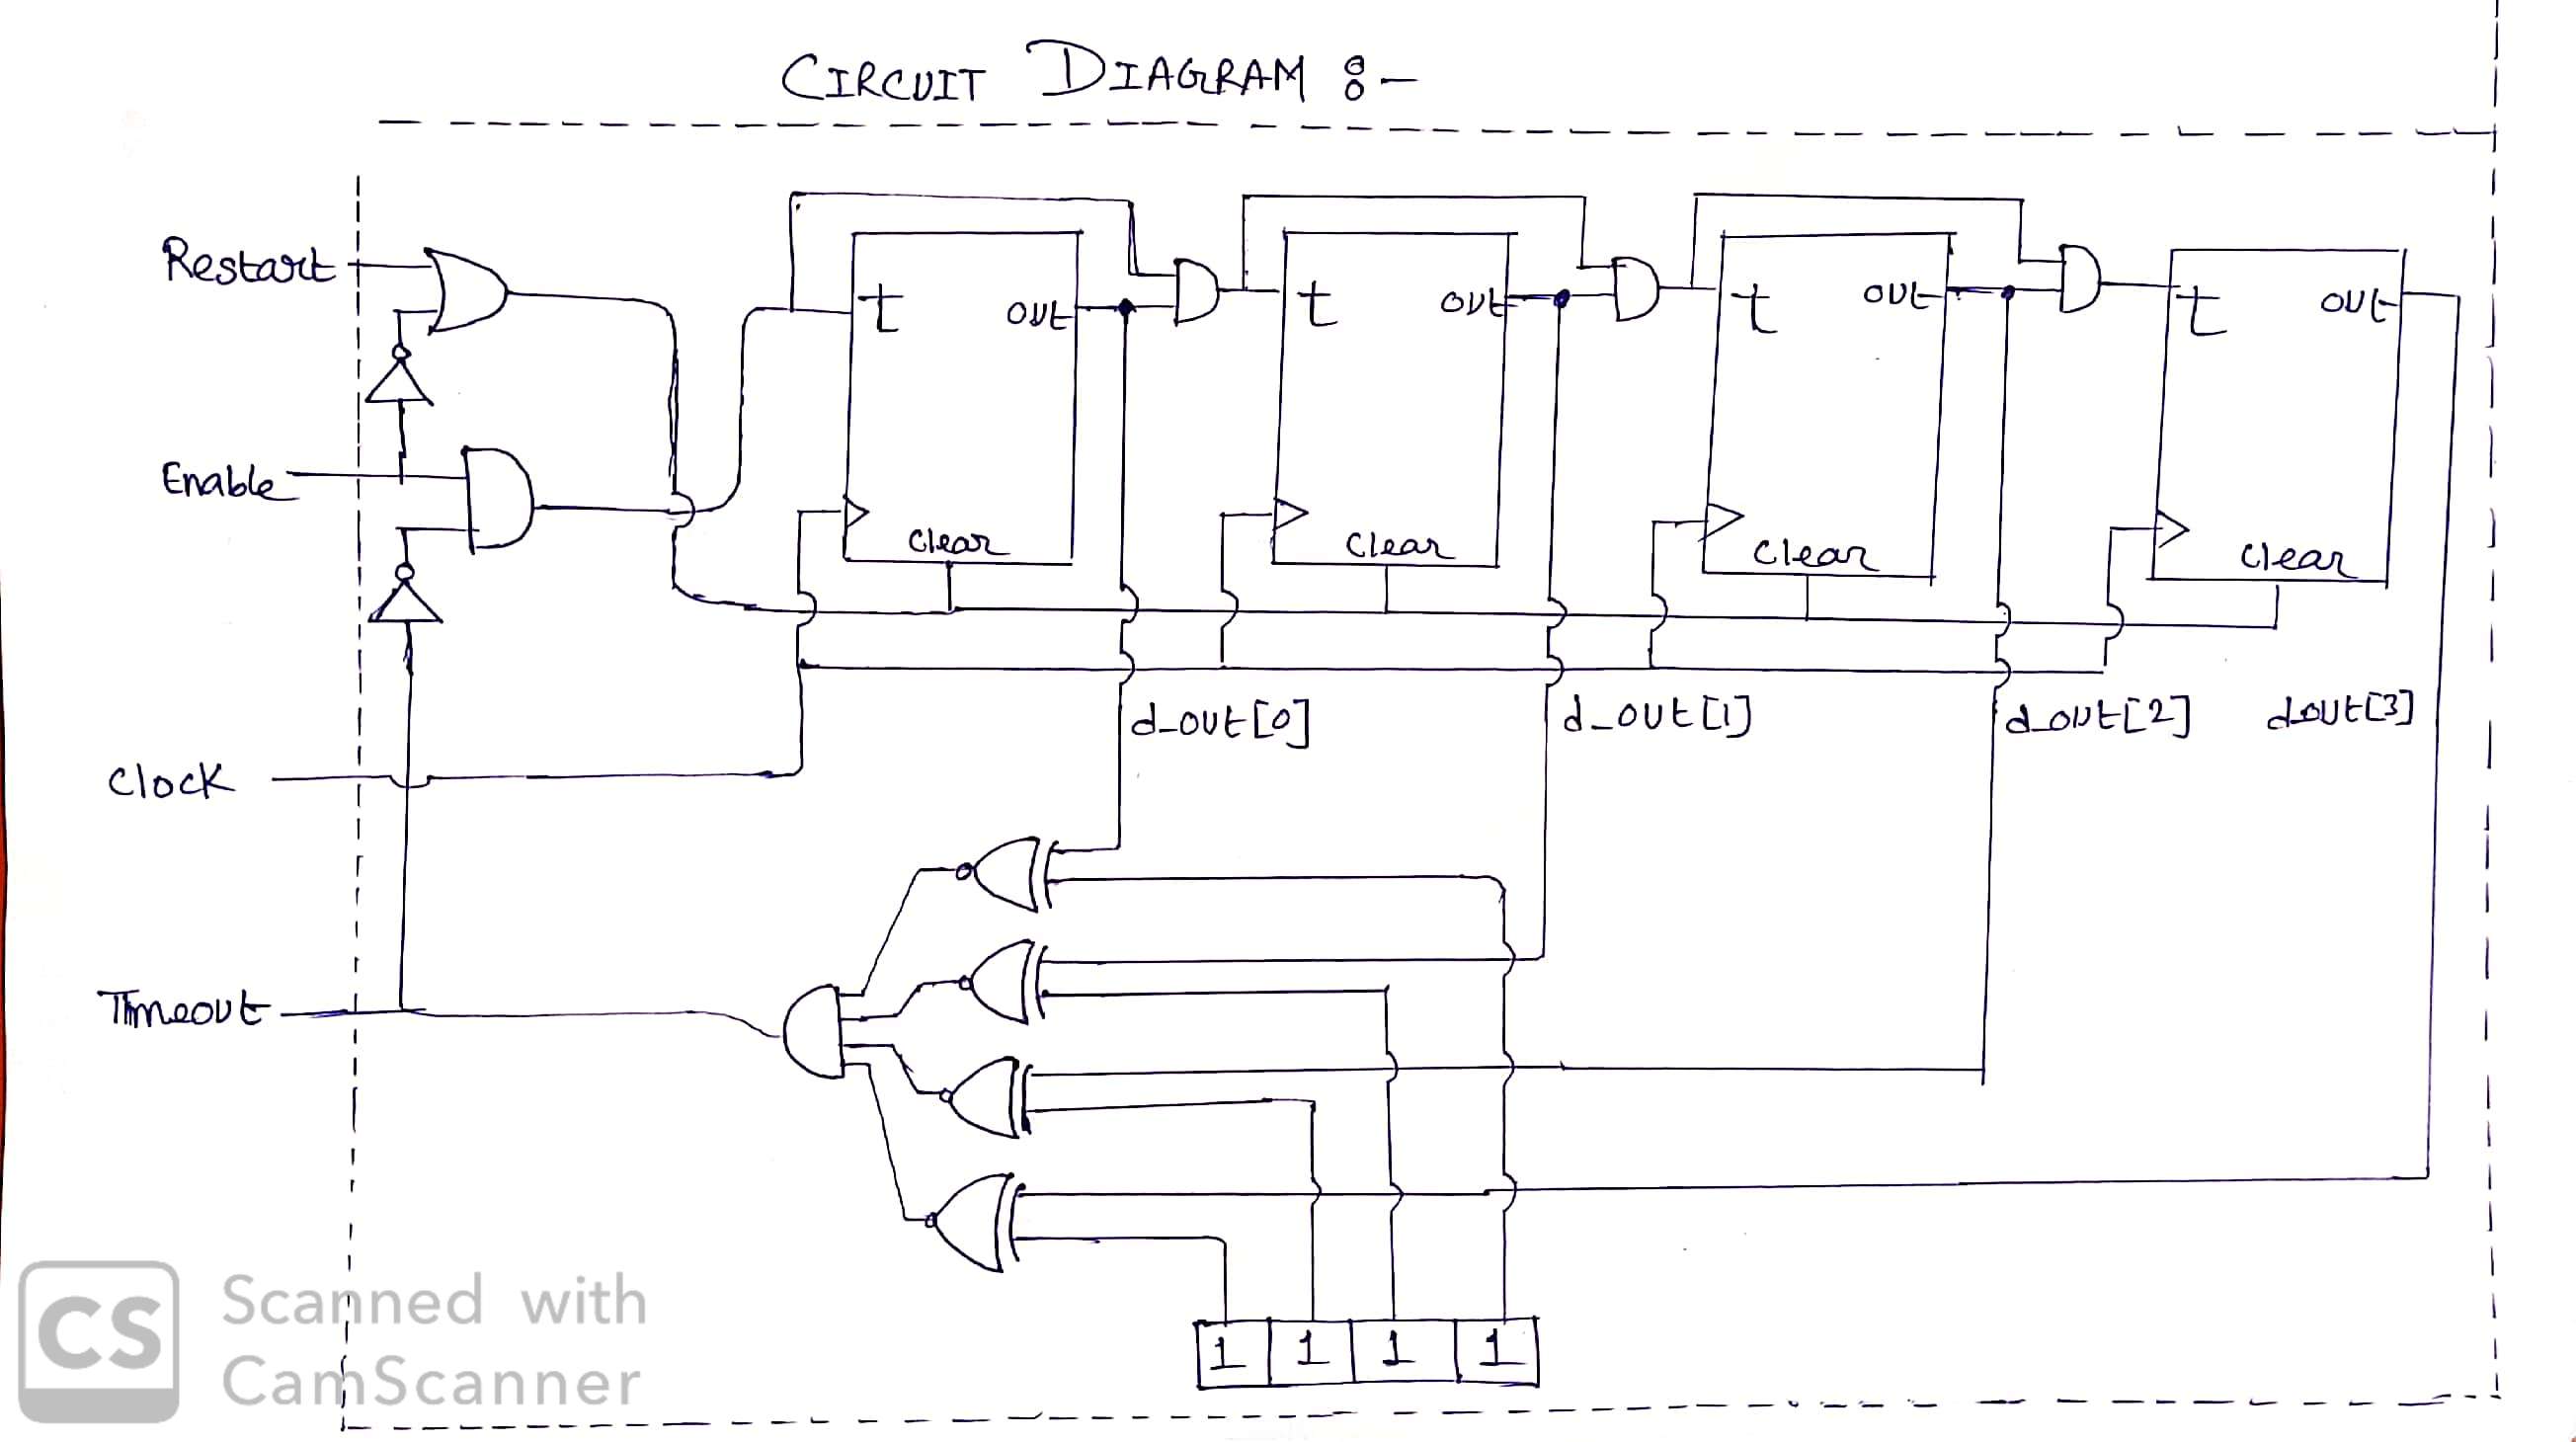 CIRCUIT DIAGRAM :-
Restart
t out t out t out t out
Enable
Clear Clear Clear Clear
d_out[0] d_out[1] d_out[2] d_out[3]
Clock
Timeout
1 1 1 1
CS Scanned with
CamScanner